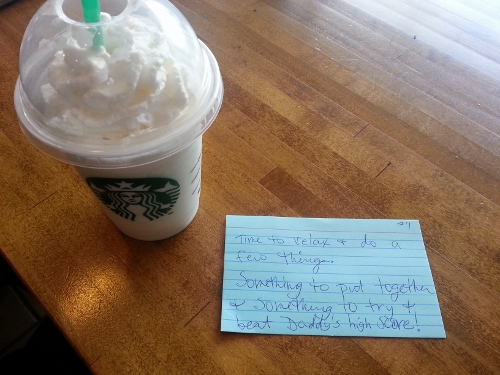 #1
Time to relax & do a
few things.
Something to put together
& something to try &
beat Daddy's high score!